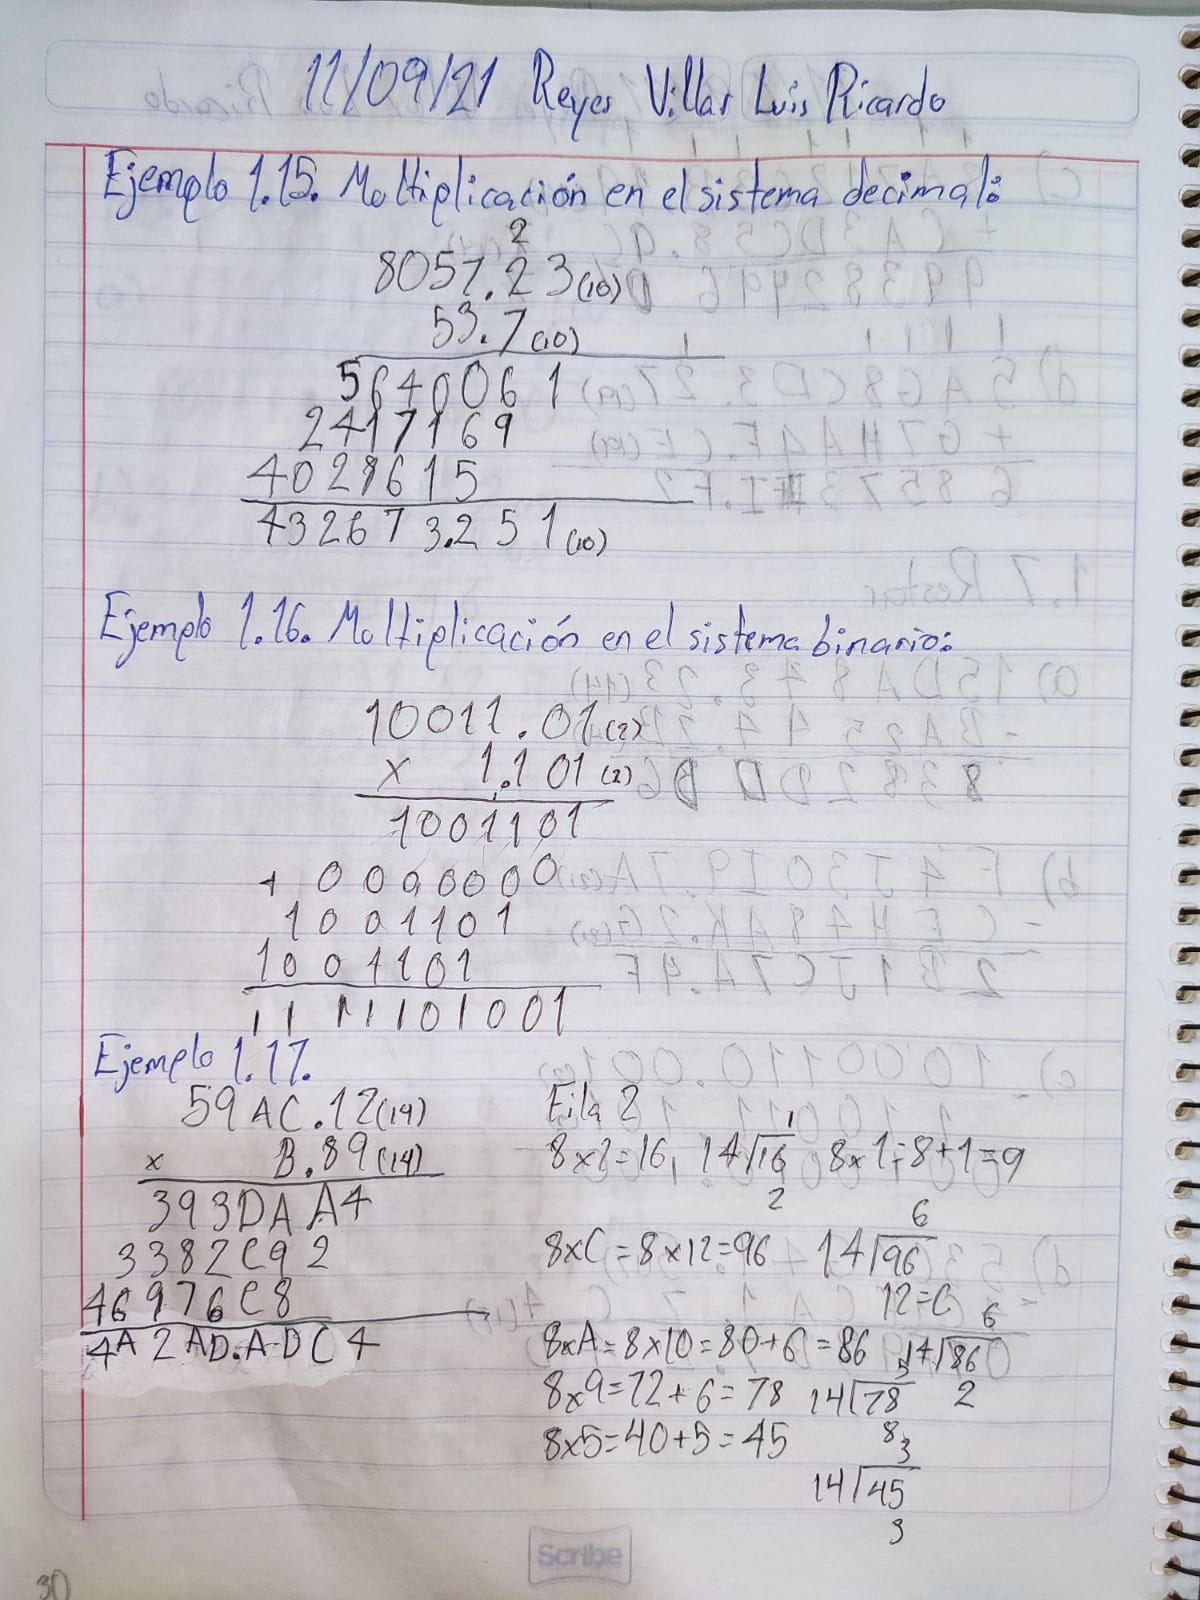 11/09/21 Reyes Villar Luis Ricardo
Ejemplo 1.15. Multiplicación en el sistema decimal:
2
8057.23(10)
53.7(10)
5640061
2417169
4028615
432673.251(10)
Ejemplo 1.16. Multiplicación en el sistema binario:
10011.01(2)
x 1.101(2)
1001101
+ 0000000
1001101
1001101
11111101001
Ejemplo 1.17.
59AC.12(14)
x B.89(14)
393DAA4
3382C92
46976C8
4A2AD.ADC4
Fila 2
8x2=16, 14√16 8x1=8+1=9
1
2
8xC=8x12=96 14√96
6
12=C
8xA=8x10=80+6=86 14√86
6
2
8x9=72+6=78 14√78
5
8
8x5=40+5=45
14√45
3
3
Scribe
30